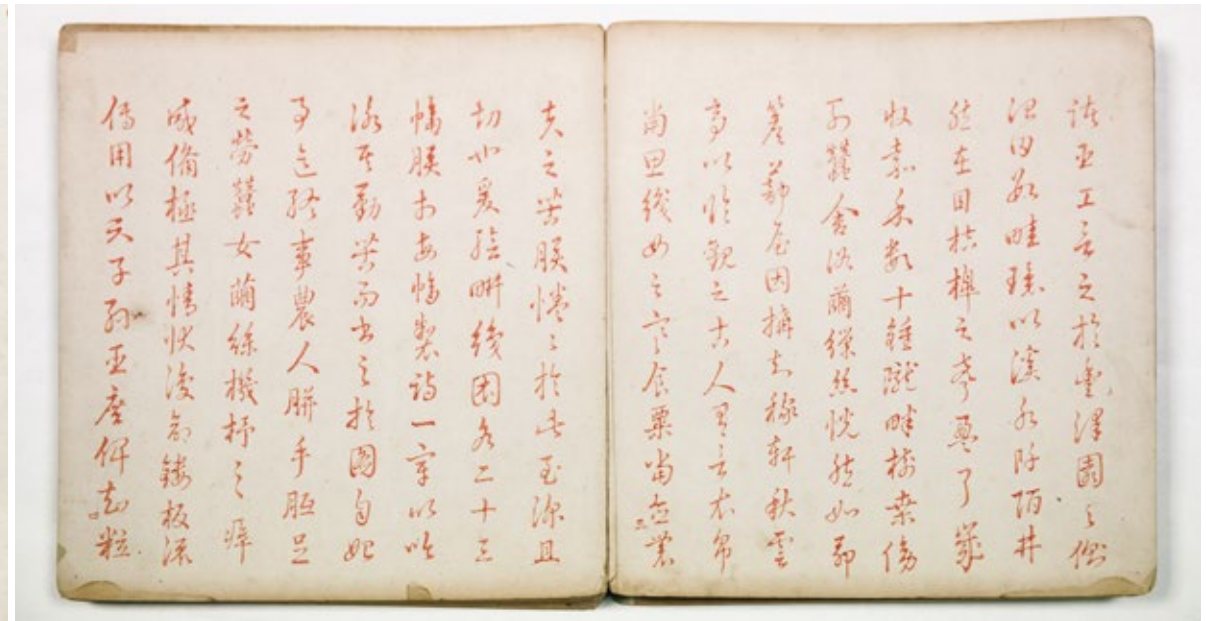 諸臣工言之於豐澤園之側
治田數畦環以溪水阡陌井
然在目桔槔之聲盈耳歲
收嘉禾數十鍾隴畔樹桑傍
列蠶舍浴繭繅絲恍然如茆
簷蔀屋因構知稼軒秋雲
亭以臨觀之古人有言衣帛
當思織女之寒食粟當念農
夫之苦朕惓〻於此至深且
切也爰繪耕織圖各二十三
幅朕於每幅製詩一章以吟
詠其勤苦而書之於圖自始
事迄終事農人胼手胝足
之勞蠶女繭絲機杼之瘁
咸備極其情狀復命鏤板流
傳用以示子孫臣庶俾知粒